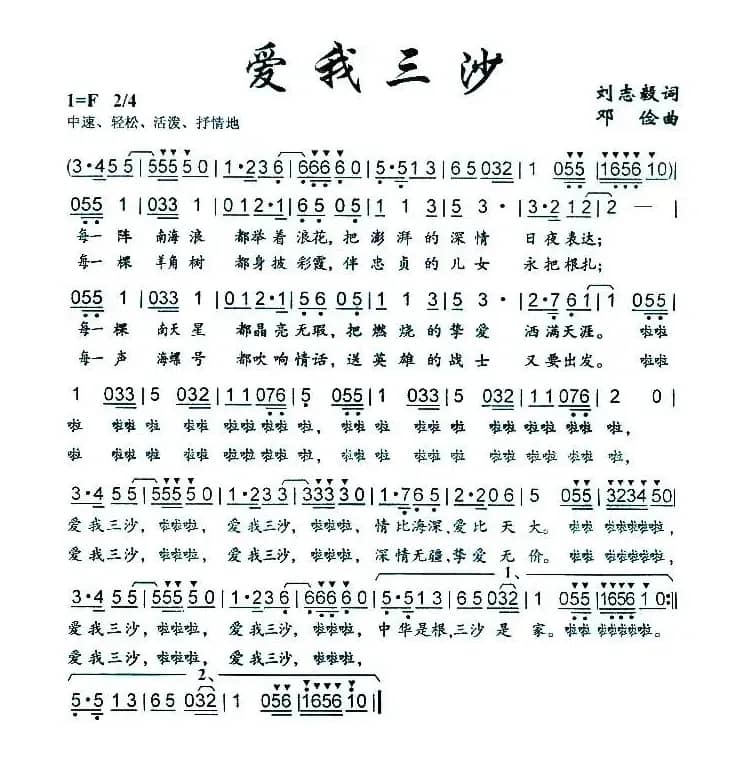 爱我三沙
1=F 2/4
刘志毅词
中速、轻松、活泼、抒情地
邓 俭曲
(3·4 5 5 | 555 5 0 | 1·2 3 6 | 666 6 0 | 5·5 1 3 | 6 5 032 | 1 055 | 1656 10)|
055 1 | 033 1 | 0 1 2·1 | 6 5 0 5 | 1 1 3 | 5 3· | 3·2 1 2 | 2 — |
每一 阵 南海 浪 都举着 浪花, 把 澎湃的 深情 日夜表达;
每一 棵 羊角 树 都身披 彩霞, 伴 忠贞的 儿女 永把根扎;
055 1 | 033 1 | 0 1 2·1 | 5 6 0 5 | 1 1 3 | 5 3· | 2·7 6 1 | 1 055 |
每一 棵 南天 星 都晶亮 无瑕, 把 燃烧的 挚爱 洒满天涯。 啦啦
每一 声 海螺 号 都吹响 情话, 送 英雄的 战士 又要出发。 啦啦
1 033 | 5 032 | 1 1 076 | 5 055 | 1 033 | 5 032 | 1 1 076 | 2 0 |
啦 啦啦 啦 啦啦 啦啦 啦啦 啦, 啦啦 啦 啦啦 啦 啦啦 啦啦 啦啦 啦,
啦 啦啦 啦 啦啦 啦啦 啦啦 啦, 啦啦 啦 啦啦 啦 啦啦 啦啦 啦啦 啦,
3·4 5 5 | 555 5 0 | 1·2 3 3 | 333 3 0 | 1·7 6 5 | 2·2 0 6 | 5 055 | 3234 50 |
爱我三沙, 啦啦啦, 爱我三沙, 啦啦啦, 情比海深,爱比 天 大。 啦啦 啦啦啦啦啦,
爱我三沙, 啦啦啦, 爱我三沙, 啦啦啦, 深情无疆,挚爱 无 价。 啦啦 啦啦啦啦啦,
1、
3·4 5 5 | 555 5 0 | 1·2 3 6 | 666 6 0 | 5·5 1 3 | 6 5 032 | 1 055 | 1656 1 0 :||
爱我三沙, 啦啦啦, 爱我三沙, 啦啦啦, 中华是根,三沙 是 家。啦啦 啦啦啦啦啦。
爱我三沙, 啦啦啦, 爱我三沙, 啦啦啦,
2、
5·5 1 3 | 6 5 032 | 1 056 | 1656 10 ||